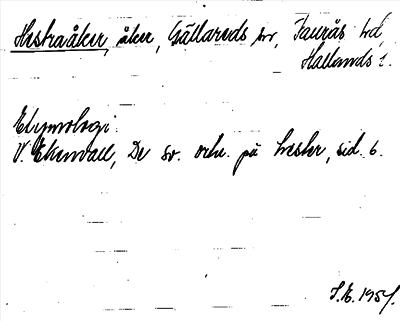 Hestraåker, åker, Gällareds sn, Faurås hd,
Hallands l.
Etymologi.
V. Ekenvall, De sv. ortn. på hester, sid. 6.
S.E. 1957.